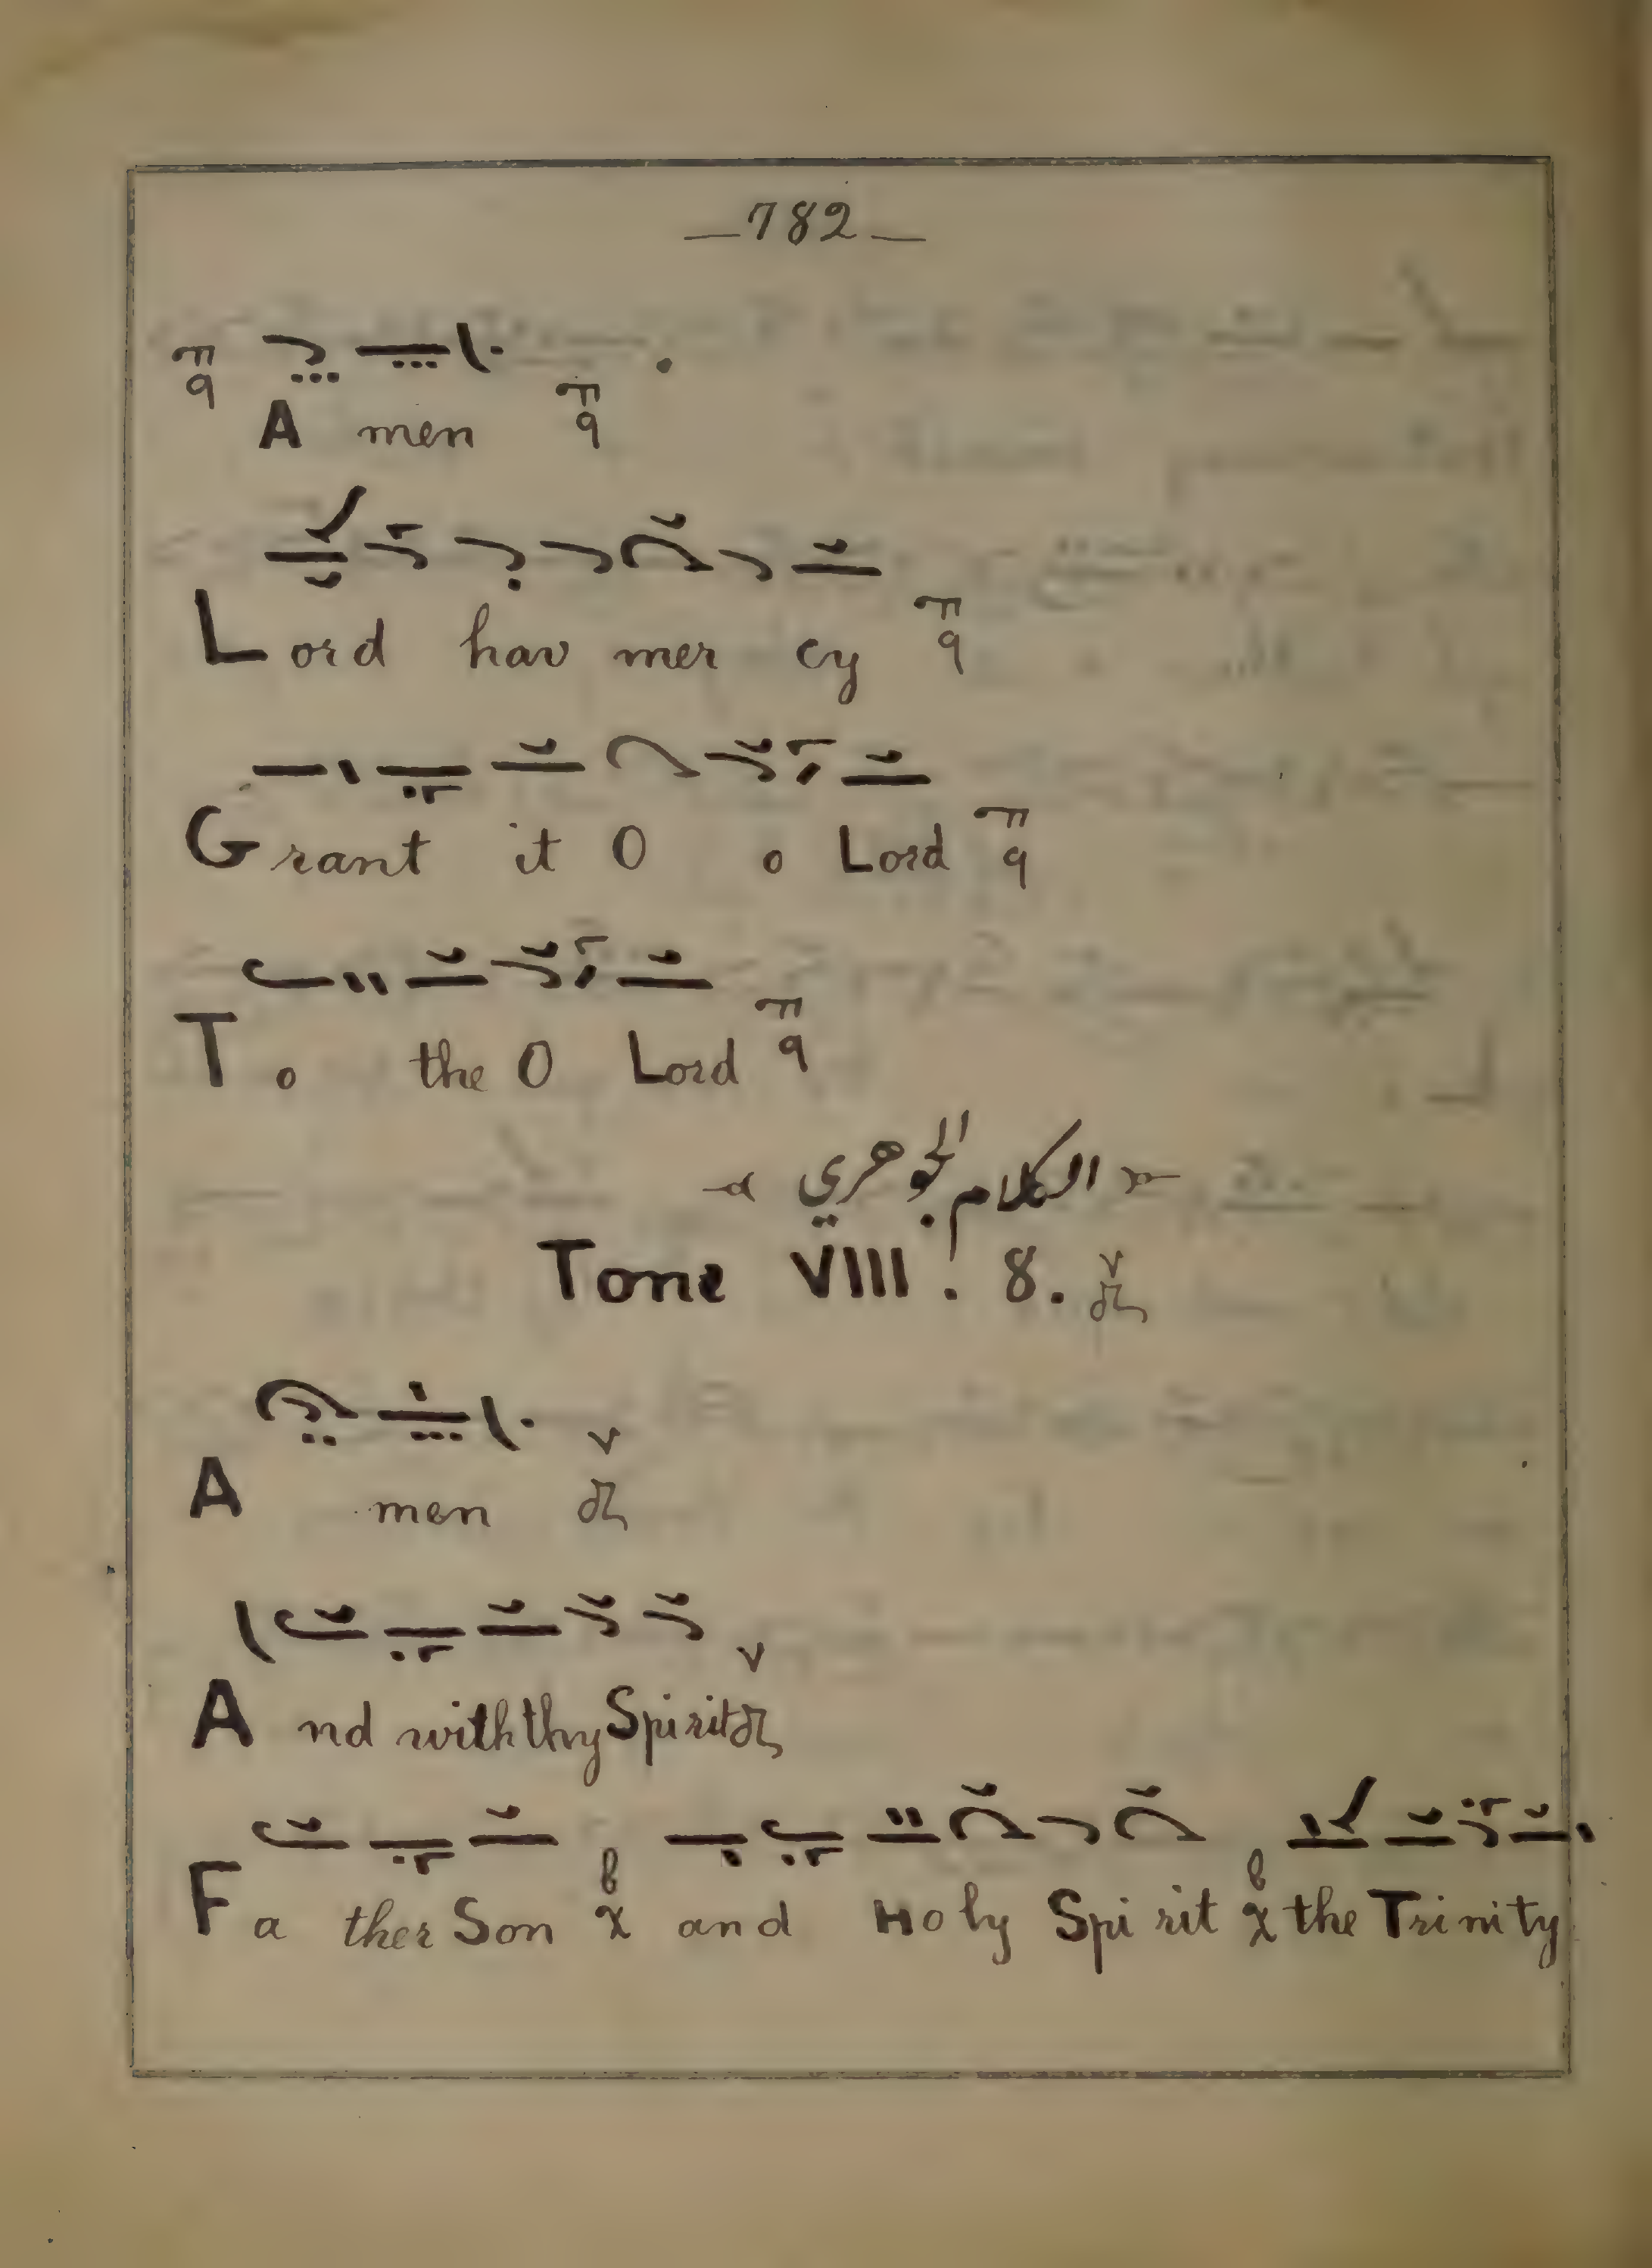 —782—
A men
Lord hav mer cy
Grant it O o Lord
To the O Lord
الكلام الجوهري
Tone VIII. 8.
A men
And with thy Spirit
Fa ther Son and Holy Spi rit the Trinity